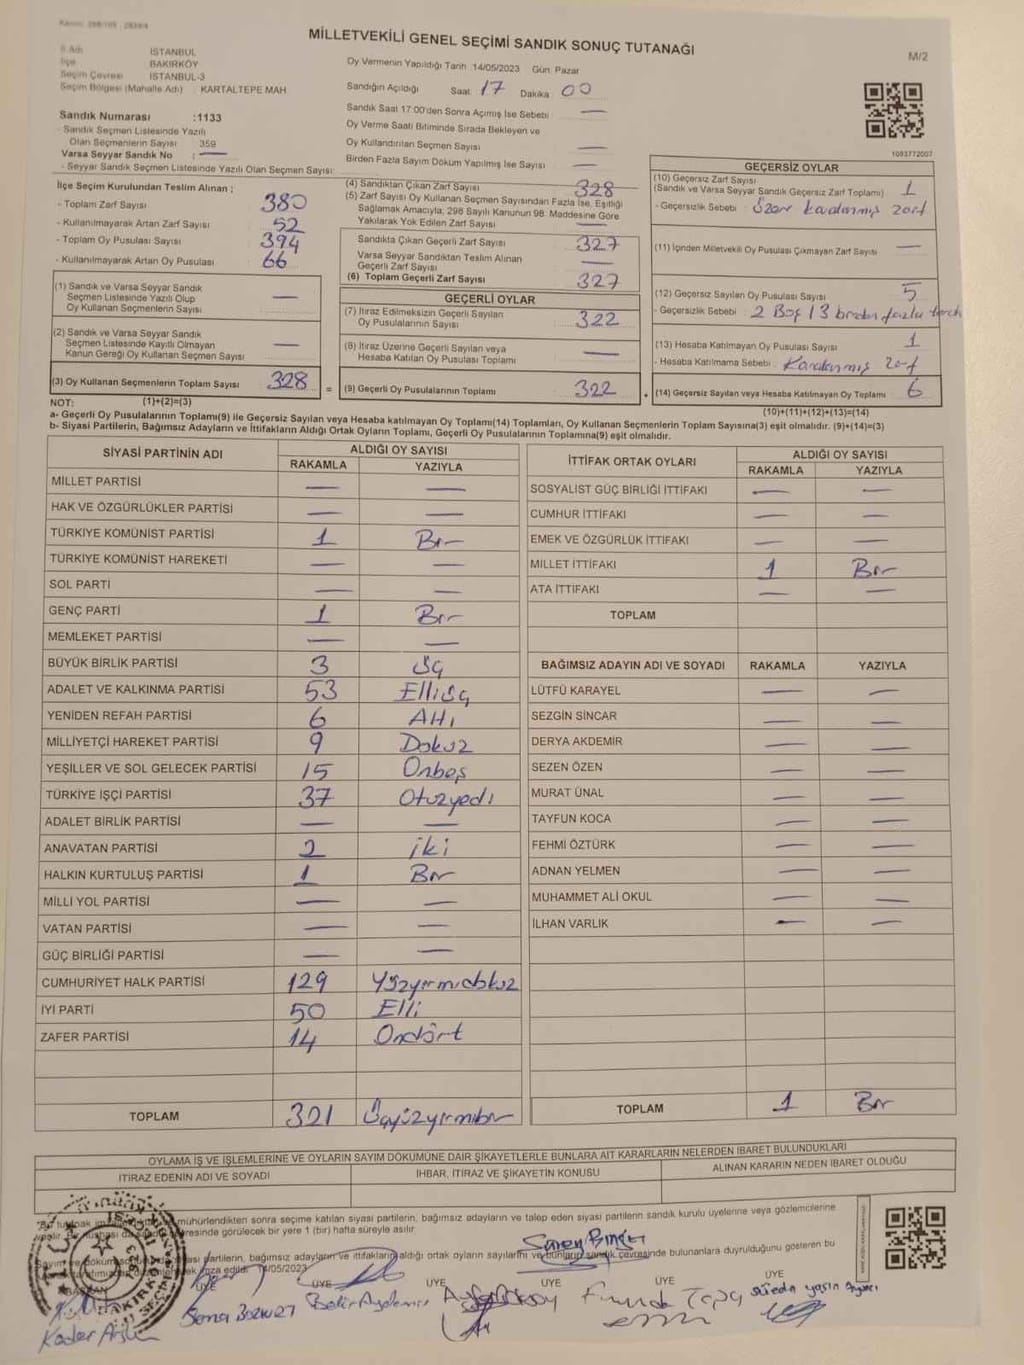 MİLLETVEKİLİ GENEL SEÇİMİ SANDIK SONUÇ TUTANAĞI
M/2
İl Adı İSTANBUL
İlçe BAKIRKÖY
Seçim Çevresi İSTANBUL-3
Seçim Bölgesi (Mahalle Adı) : KARTALTEPE MAH
Sandık Numarası :1133
- Sandık Seçmen Listesinde Yazılı
Olan Seçmenlerin Sayısı 359
Varsa Seyyar Sandık No : —
- Seyyar Sandık Seçmen Listesinde Yazılı Olan Seçmen Sayısı:
Oy Vermenin Yapıldığı Tarih :14/05/2023 Gün: Pazar
Sandığın Açıldığı Saat 17 Dakika 00
Sandık Saat 17:00'den Sonra Açımış İse Sebebi —
Oy Verme Saati Bitiminde Sırada Bekleyen ve
Oy Kullandırılan Seçmen Sayısı —
Birden Fazla Sayım Döküm Yapılmış İse Sayısı —
1093772007
İlçe Seçim Kurulundan Teslim Alınan ;
- Toplam Zarf Sayısı 380
- Kullanılmayarak Artan Zarf Sayısı 52
- Toplam Oy Pusulası Sayısı 394
- Kullanılmayarak Artan Oy Pusulası 66
(1) Sandık ve Varsa Seyyar Sandık
Seçmen Listesinde Yazılı Olup
Oy Kullanan Seçmenlerin Sayısı —
(2) Sandık ve Varsa Seyyar Sandık
Seçmen Listesinde Kayıtlı Olmayan
Kanun Gereği Oy Kullanan Seçmen Sayısı —
(3) Oy Kullanan Seçmenlerin Toplam Sayısı 328
(4) Sandıktan Çıkan Zarf Sayısı 328
(5) Zarf Sayısı Oy Kullanan Seçmen Sayısından Fazla İse, Eşitliği
Sağlamak Amacıyla, 298 Sayılı Kanunun 98. Maddesine Göre
Yakılarak Yok Edilen Zarf Sayısı —
Sandıkta Çıkan Geçerli Zarf Sayısı 327
Varsa Seyyar Sandıktan Teslim Alınan
Geçerli Zarf Sayısı —
(6) Toplam Geçerli Zarf Sayısı 327
GEÇERLİ OYLAR
(7) İtiraz Edilmeksizin Geçerli Sayılan
Oy Pusulalarının Sayısı 322
(8) İtiraz Üzerine Geçerli Sayılan veya
Hesaba Katılan Oy Pusulası Toplamı —
= (9) Geçerli Oy Pusulalarının Toplamı 322
GEÇERSİZ OYLAR
(10) Geçersiz Zarf Sayısı
(Sandık ve Varsa Seyyar Sandık Geçersiz Zarf Toplamı) 1
- Geçersizlik Sebebi Üzeri karalanmış zarf
(11) İçinden Milletvekili Oy Pusulası Çıkmayan Zarf Sayısı —
(12) Geçersiz Sayılan Oy Pusulası Sayısı 5
- Geçersizlik Sebebi : 2 Boş / 3 birden fazla tercih
(13) Hesaba Katılmayan Oy Pusulası Sayısı 1
- Hesaba Katılmama Sebebi : Karalanmış zarf
+ (14) Geçersiz Sayılan veya Hesaba Katılmayan Oy Toplamı 6
NOT: (1)+(2)=(3)
(10)+(11)+(12)+(13)=(14)
a- Geçerli Oy Pusulalarının Toplamı(9) ile Geçersiz Sayılan veya Hesaba katılmayan Oy Toplamı(14) Toplamları, Oy Kullanan Seçmenlerin Toplam Sayısına(3) eşit olmalıdır. (9)+(14)=(3)
b- Siyasi Partilerin, Bağımsız Adayların ve İttifakların Aldığı Ortak Oyların Toplamı, Geçerli Oy Pusulalarının Toplamına(9) eşit olmalıdır.
SİYASİ PARTİNİN ADI ALDIĞI OY SAYISI
RAKAMLA YAZIYLA
MİLLET PARTİSİ — —
HAK VE ÖZGÜRLÜKLER PARTİSİ — —
TÜRKİYE KOMÜNİST PARTİSİ 1 Bir
TÜRKİYE KOMÜNİST HAREKETİ — —
SOL PARTİ — —
GENÇ PARTİ 1 Bir
MEMLEKET PARTİSİ — —
BÜYÜK BİRLİK PARTİSİ 3 Üç
ADALET VE KALKINMA PARTİSİ 53 Elliüç
YENİDEN REFAH PARTİSİ 6 Altı
MİLLİYETÇİ HAREKET PARTİSİ 9 Dokuz
YEŞİLLER VE SOL GELECEK PARTİSİ 15 Onbeş
TÜRKİYE İŞÇİ PARTİSİ 37 Otuzyedi
ADALET BİRLİK PARTİSİ — —
ANAVATAN PARTİSİ 2 iki
HALKIN KURTULUŞ PARTİSİ 1 Bir
MİLLİ YOL PARTİSİ — —
VATAN PARTİSİ — —
GÜÇ BİRLİĞİ PARTİSİ — —
CUMHURİYET HALK PARTİSİ 129 Yüzyirmidokuz
İYİ PARTİ 50 Elli
ZAFER PARTİSİ 14 Ondört
TOPLAM 321 Üçyüzyirmibir
İTTİFAK ORTAK OYLARI ALDIĞI OY SAYISI
RAKAMLA YAZIYLA
SOSYALİST GÜÇ BİRLİĞİ İTTİFAKI — —
CUMHUR İTTİFAKI — —
EMEK VE ÖZGÜRLÜK İTTİFAKI — —
MİLLET İTTİFAKI 1 Bir
ATA İTTİFAKI — —
TOPLAM
BAĞIMSIZ ADAYIN ADI VE SOYADI RAKAMLA YAZIYLA
LÜTFÜ KARAYEL — —
SEZGİN SİNCAR — —
DERYA AKDEMİR — —
SEZEN ÖZEN — —
MURAT ÜNAL — —
TAYFUN KOCA — —
FEHMİ ÖZTÜRK — —
ADNAN YELMEN — —
MUHAMMET ALİ OKUL — —
İLHAN VARLIK — —
TOPLAM 1 Bir
OYLAMA İŞ VE İŞLEMLERİNE VE OYLARIN SAYIM DÖKÜMÜNE DAİR ŞİKAYETLERLE BUNLARA AİT KARARLARIN NELERDEN İBARET BULUNDUKLARI
İTİRAZ EDENİN ADI VE SOYADI İHBAR, İTİRAZ VE ŞİKAYETİN KONUSU ALINAN KARARIN NEDEN İBARET OLDUĞU
mühürlendikten sonra seçime katılan siyasi partilerin, bağımsız adayların ve talep eden siyasi partilerin sandık kurulu üyelerine veya gözlemcilerine
çevresinde görülecek bir yere 1 (bir) hafta süreyle asılır.
partilerin, bağımsız adayların ve ittifakların aldığı ortak oyların sayılarını ve bunların sandık çevresinde bulunanlara duyrulduğunu gösteren bu
imza edildi. 14/05/2023
BAŞKAN ÜYE ÜYE ÜYE ÜYE ÜYE ÜYE
Sema Bozkurt Bekir Aydemir